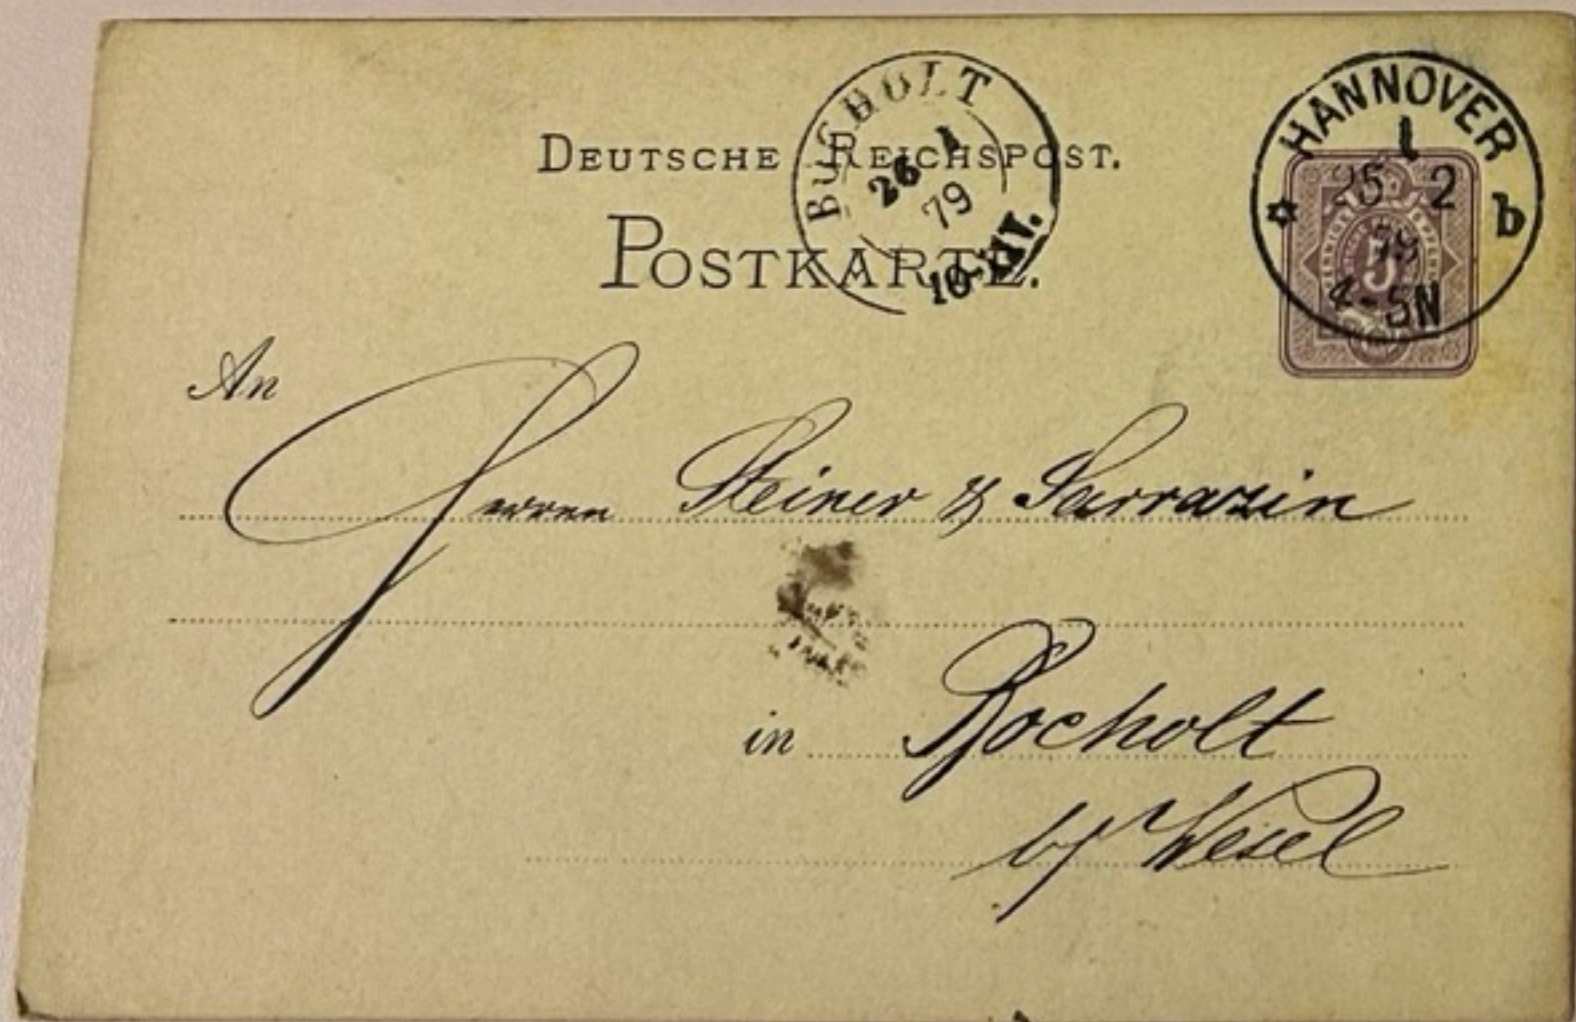 DEUTSCHE REICHSPOST.
POSTKARTE.
BOCHOLT
26 1
79
10-11V.
HANNOVER
25 1 2
79
4-5N
b
5
An
Herren Steiner & Sarrazin
in Bocholt
b/ Wesel